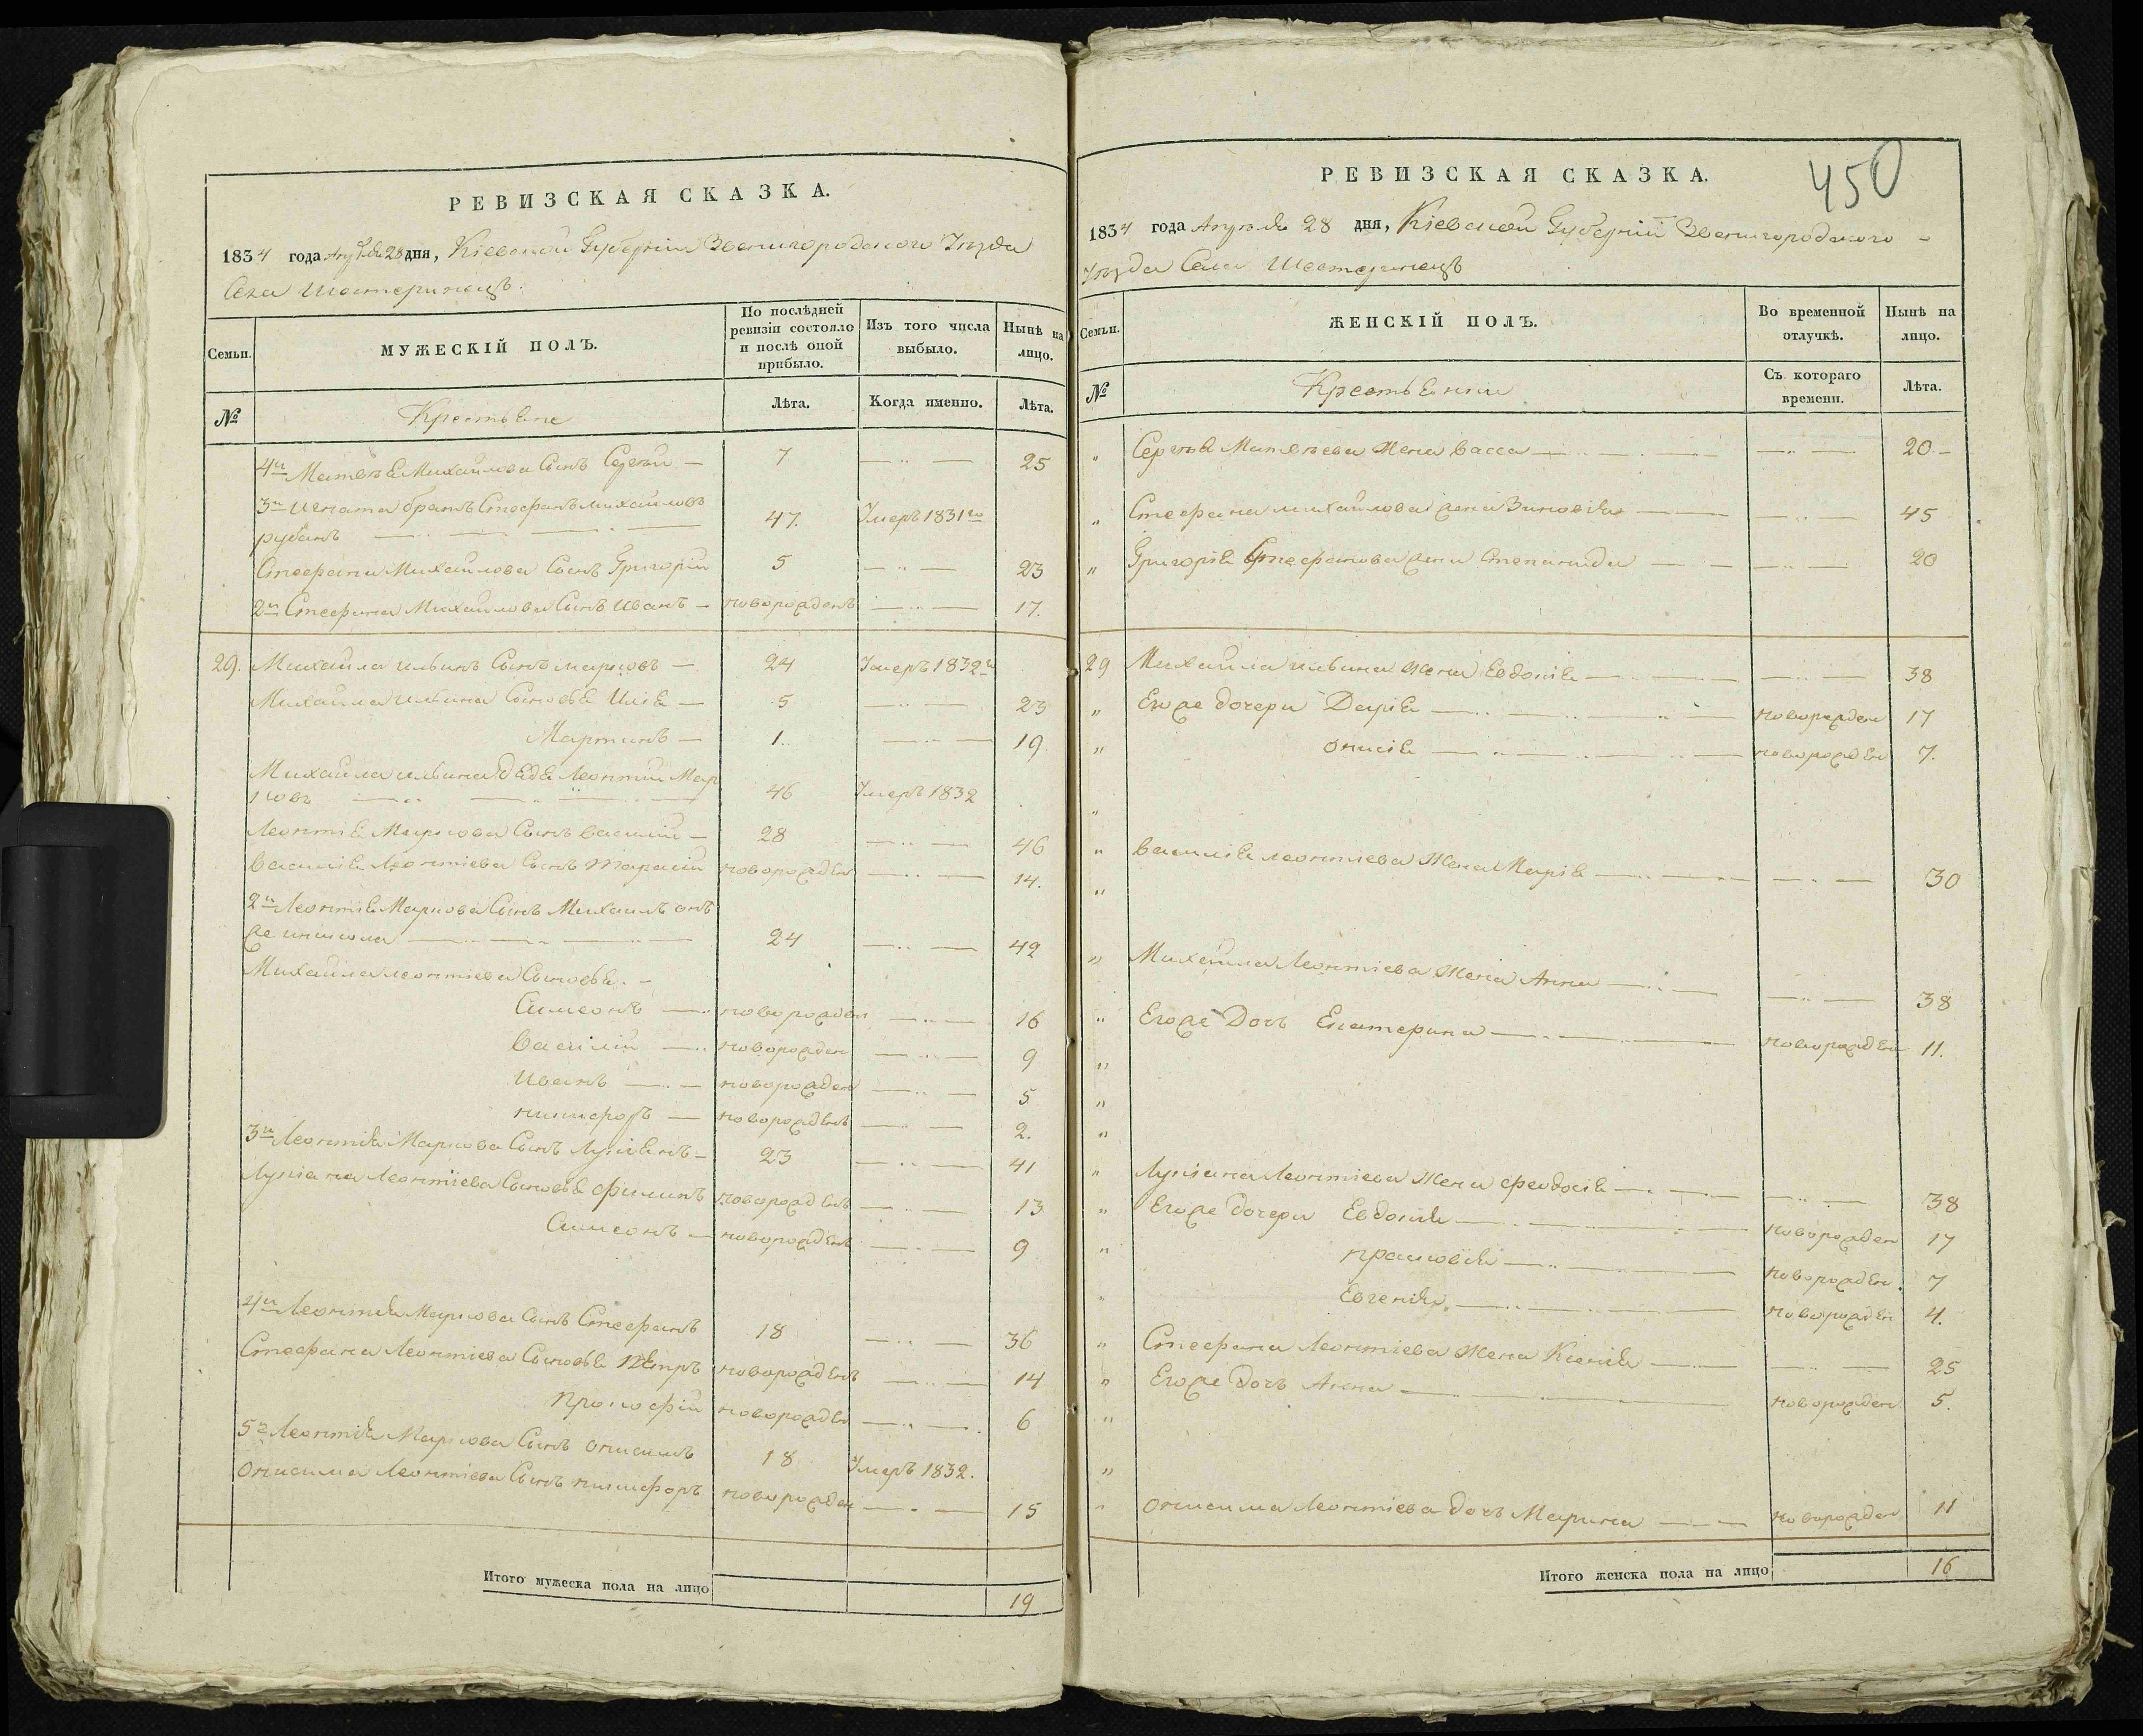 РЕВИЗСКАЯ СКАЗКА.
1834 года Апреля 28 дня, Кіевской Губерніи Звенигородского Уезда
Села Шестеринецъ.
Семьи.
МУЖЕСКІЙ ПОЛЪ.
По послѣдней ревизіи состояло и послѣ оной прибыло.
Изъ того числа выбыло.
Нынѣ на лицо.
№
Крестьяне
Лѣта.
Когда именно.
Лѣта.
4й Матвѣя Михайлова Сынъ Сергѣй — 7 — „ — 25
3й Игната братъ Стефанъ Михайловъ
рубанъ — „ — 47. Умеръ 1831го
Стефана Михайлова Сынъ Григорій 5 — „ — 23
2й Стефана Михайлова Сынъ Иванъ — новорожденъ — „ — 17.
29. Михайла Ильинъ Сынъ марковъ — 24 Умеръ 1832го
Михайла Ильина Сыновья Илія — 5 — „ — 23
Мартинъ — 1. — „ — 19.
Михайла ильина дядя Леонтій Мар
ковъ — „ — 46 Умеръ 1832
Леонтія Маркова Сынъ василій — 28 — „ — 46
василія Леонтіева Сынъ тарасій новорожден — „ — 14.
2й Леонтія Маркова Сынъ Михаилъ онъ
же — „ — 24 — „ — 42
Михайла леонтіева Сыновья. —
Симеонъ — новорожден — „ — 16
Василій — новорожден — „ — 9
Иванъ — новорожден — „ — 5
никифоръ — новорожденъ — „ — 2.
3й Леонтія Маркова Сынъ Лукіянъ — 23 — „ — 41
Лукіана Леонтіева Сыновья филипъ новорожденъ — „ — 13
Симеонъ — новорожденъ — „ — 9
4й Леонтія Маркова Сынъ Стефанъ 18 — „ — 36
Стефана Леонтіева Сыновья Пётръ новорожденъ — „ — 14
прокофій новорожден — „ — 6
5й Леонтія Маркова Сынъ онисимъ 18 Умеръ 1832.
онисима Леонтіева Сынъ никифоръ новорожден — „ — 15
Итого мужеска пола на лицо 19
450
РЕВИЗСКАЯ СКАЗКА.
1834 года Апреля 28 дня, Кіевской Губерніи Звенигородского —
Уезда Села Шестеринецъ
Семьи.
ЖЕНСКІЙ ПОЛЪ.
Во временной отлучкѣ.
Нынѣ на лицо.
№
Крестьянки
Съ котораго времени.
Лѣта.
„ Сергѣя Матвѣева жена васса — „ — 20 —
„ Стефана михайлова жена Зиновія — „ — 45
„ Григорія Стефанова жена Степанида — „ — 20
29 Михайла ильина жена Евдокія — „ — 38
„ Егоже дочери Дарія — „ — новорожден 17
„ онисія — „ — новорожден 7.
„
„ василія леонтіева жена Марія — „ — 30
„
„ Михайла Леонтіева жена Анна — „ — 38
„ Егоже Дочь Екатерина — „ — новорожден 11.
„
„
„
„ Лукіана Леонтіева жена феодосія — „ — 38
„ Егоже дочери Евдокія — „ — новорожден 17
„ прасковія — „ — новорожден. 7
„ Евгенія — „ — новорожден 4.
„ Стефана Леонтіева жена Ксенія — „ — 25
„ Егоже Дочь Анна — „ — новорожден 5.
„
„
„ онисима Леонтіева дочь Марина — новорожден 11
Итого женска пола на лицо 16